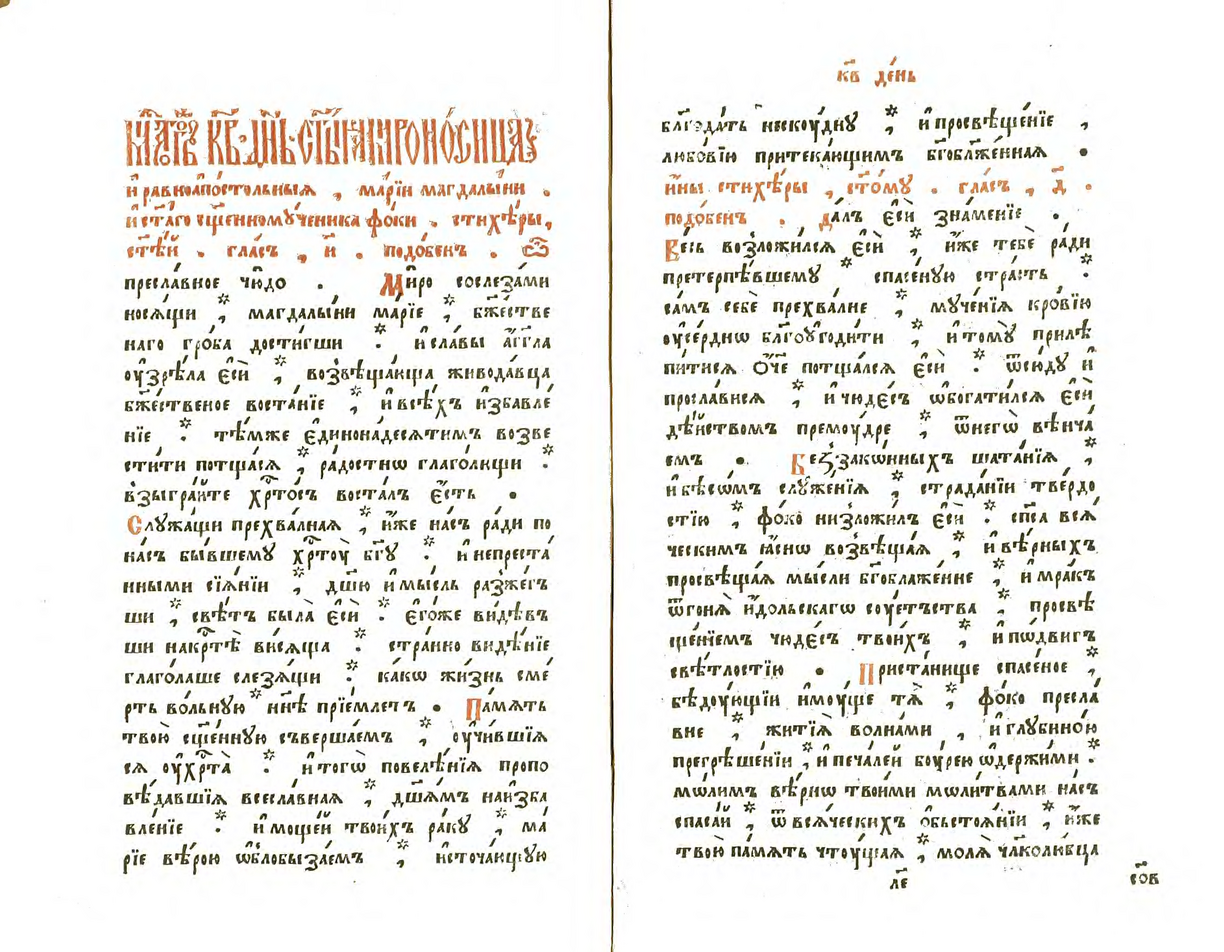 мⷭ҇ца тогѡ́ж̾ въ к҃в днь ст҃ы́ѧ мѷроно́сица
и҆ равноапⷭ҇тольныѧ , марі́и магдалы́ни .
и҆ ст҃а́гѡ сщ҃енномꙋ́ченика фо́ки . стихѣ́ры,
ст҃ѣ́й . гла́съ , и҃ . подо́бенъ . Ѽ
пресла́вное чю́до . Ми́ро сослеза́ми
носѧ́щи * , магдалы́ни марі́е * , бж҃е́стве
наго гро́ба дости́гши * . и҆сла́вы а҆́гг҃ла
оу҆зрѣ́ла є҆сѝ * , возвѣща́юща живода́вца
бж҃е́ственое воста́нїе * , и҆всѣ́хъ и҆збавле́
нїе * . тѣ́мже є҆динона́десѧтимъ возве
сти́ти потща́сѧ * , ра́достнѡ глаго́лющи * .
взыгра́йте хрⷭ҇то́съ воста́лъ є҆́сть .
Слꙋжа́щи прехва́лная * , и҆́же на́съ ра́ди по
на́съ бы́вшемꙋ хрⷭ҇тоу̀ бг҃ꙋ * . и҆непреста́
нными сїѧ́нїи * , дш҃ю и҆мы́сль разже́гъ
ши * , свѣ́тъ была̀ є҆сѝ * . є҆го́же ви́дѣвъ
ши накрⷭ҇тѣ̀ ви́сѧща * . стра́нно видѣ́нїе
глаго́лаше слезѧ́щи * . ка́кѡ жи́знь сме́
рть во́льнꙋю * нн҃ѣ прїе́млетъ . Па́мѧть
твою̀ сщ҃е́ннꙋю съверша́емъ * , оу҆чи́вшїѧ
сѧ оу҆хрⷭ҇та̀ * . и҆тогѡ̀ повелѣ́нїѧ пропо
вѣ́давшїѧ всесла́вная * , дш҃ѧ́мъ наи҆зба
вле́нїе * . и҆ моще́й твои́хъ ра́кꙋ * , ма
рі́е вѣ́рою ѡ҆блобыза́емъ * , и҆сточа́ющꙋю
к҃в де́нь
блгⷣода́ть нескоу́днꙋ * , и҆ просвѣще́нїе ,
любо́вїю притека́ющимъ бг҃облаже́нная .
и҆́ны стихѣ́ры , ст҃о́мꙋ . гла́съ , д҃ .
подо́бенъ . да́лъ є҆сѝ зна́менїе .
Ве́сь возложи́лсѧ є҆сѝ * , и҆́же тебѐ ра́ди
претерпѣ́вшемꙋ * спасе́ную стра́сть * .
са́мъ себѐ прехва́лне * , мꙋче́нїѧ кро́вїю
оу҆се́рднѡ бл҃гоꙋгоди́ти * , и҆ томꙋ̀ прилѣ
пи́тисѧ ѻ҆́ч҃е потща́лсѧ є҆сѝ * . ѿсю́дꙋ и҆
просла́висѧ * , и҆ чюде́съ ѡ҆богати́лсѧ є҆сѝ
дѣ́йствомъ премоу́дре * , ѿнегѡ̀ вѣнча́
емъ . Беззако́нныхъ шата́нїѧ * ,
и҆ бѣсѡ́мъ слꙋже́нїѧ * , страда́нїи тве́рдо
стїю * , фо́ко низложи́лъ є҆сѝ * . сп҃са всѧ́
ческимъ ꙗ҆́снѡ возвѣща́ѧ * , и҆ вѣ́рныхъ
просвѣща́ѧ мы́сли бг҃облаже́нне * , и҆ мра́къ
ѿгонѧ̀ и҆́дольскагѡ соу́етъства * , просвѣ
ще́нїемъ чюде́съ твои́хъ * , и҆ по́двигъ
свѣ́тлостїю . Приста́нище спасе́ное * ,
бѣ́доующїи и҆моу́ще тѧ̀ * , фо́ко пресла́
вне * , житїѧ̀ волна́ми , и҆ глꙋбино́ю
прегрѣше́нїи * , и҆ печа́лей боу́рею ѡ҆держи́ми * .
мо́лимъ вѣ́рнѡ твои́ми мѡли́твами на́съ
спаса́й * , ѿ всѧ́ческихъ ѻ҆бьстоѧ́нїи * , и҆́же
твою̀ па́мѧть чтоу́щаѧ * , молѧ̀ чл҃колю́бца
л҃є
сѡⷡ҇